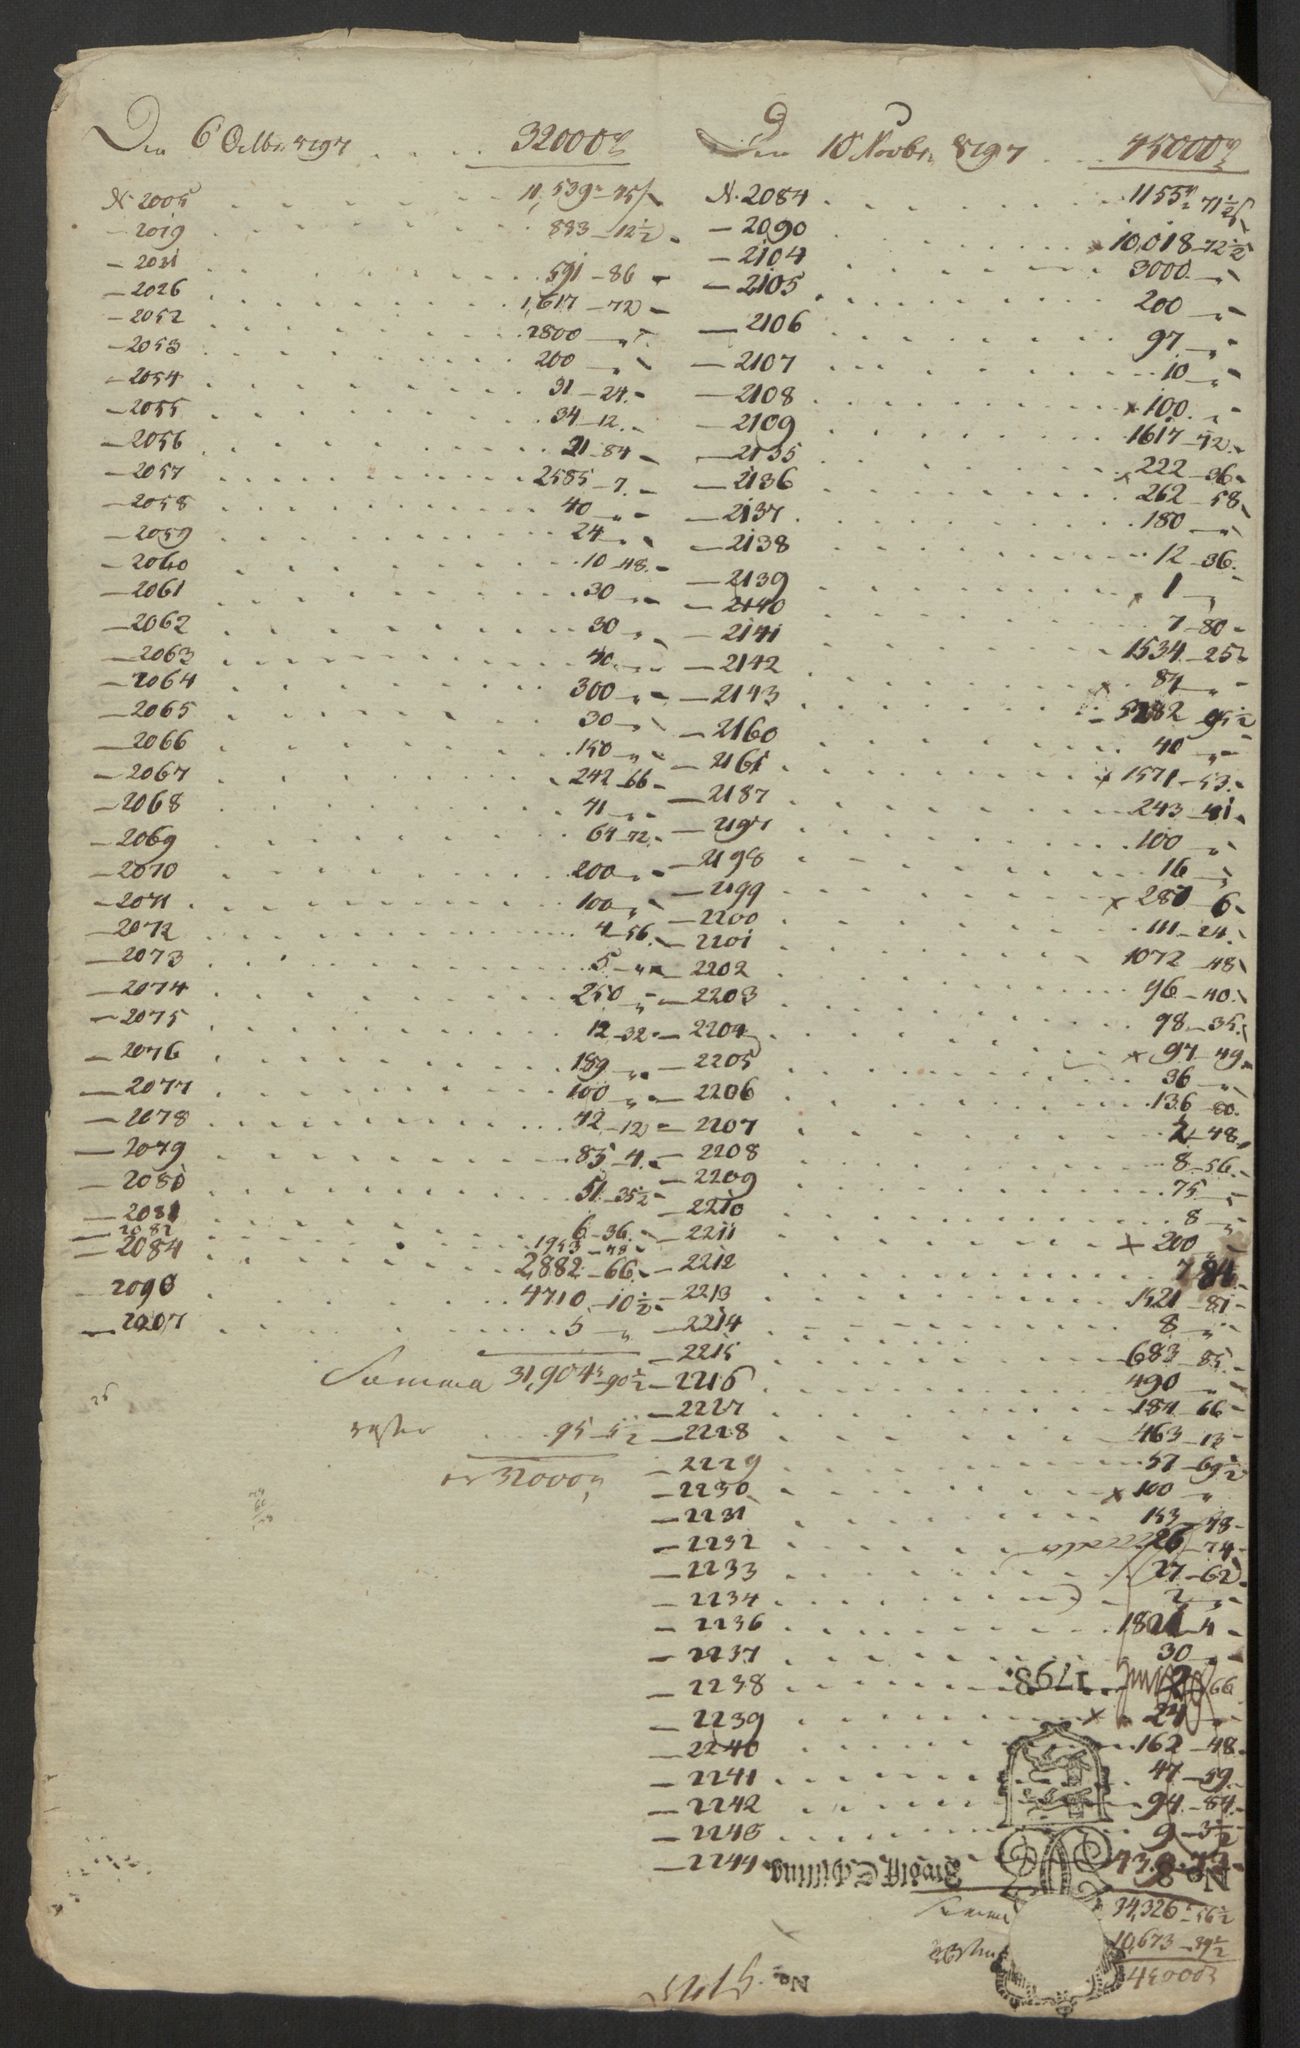 Den 6 Octbr 1797 . . . 32000
N. 2005 . . . 11,539 - 45
- 2019 . . . 883 - 12½
- 2021 . . . 591 - 86
- 2026 . . . 1,617 - 72
- 2052 . . . 2800 - „
- 2053 . . . 200 - „
- 2054 . . . 31 - 24
- 2055 . . . 34 - 12
- 2056 . . . 21 - 84
- 2057 . . . 2585 - 7
- 2058 . . . 40 - „
- 2059 . . . 24 - „
- 2060 . . . 10 - 48
- 2061 . . . 30 - „
- 2062 . . . 30 - „
- 2063 . . . 40 - „
- 2064 . . . 300 - „
- 2065 . . . 30 - „
- 2066 . . . 150 - „
- 2067 . . . 242 - 66
- 2068 . . . 41 - „
- 2069 . . . 64 - 72
- 2070 . . . 200 - „
- 2071 . . . 100 - „
- 2072 . . . 4 - 56
- 2073 . . . 5 - „
- 2074 . . . 250 - „
- 2075 . . . 12 - 32
- 2076 . . . 189 - „
- 2077 . . . 100 - „
- 2078 . . . 42 - 12
- 2079 . . . 85 - 4
- 2080 . . . 51 - 35½
- 2081 . . . 6 - 36
- 2082 . . . 1953 - 48
- 2084 . . . 2,882 - 66
- 2090 . . . 4710 - 10½
- 2207 . . . 5 - „
Summa 31,904 - 90½
rester . . . 95 - 5½
32000
Den 10 Novbr 1797 . . . 45000
N. 2084 . . . 1155 - 71½
- 2090 . . . 10,018 - 72½
- 2104 . . . 3000 - „
- 2105 . . . 200 - „
- 2106 . . . 97 - „
- 2107 . . . 10 - „
- 2108 . . . x 100 - „
- 2109 . . . 1617 - 72
- 2135 . . . 222 - 36
- 2136 . . . x 262 - 58
- 2137 . . . 180 - „
- 2138 . . . 12 - 36
- 2139 . . . x 1 - „
- 2140 . . . 7 - 80
- 2141 . . . 1534 - 25
- 2142 . . . x 84 - „
- 2143 . . . 5282 - 95½
- 2160 . . . 40 - „
- 2161 . . . x 1571 - 53
- 2187 . . . 243 - 41
- 2197 . . . 100 - „
- 2198 . . . 16 - „
- 2199 . . . x 280 - 6
- 2200 . . . 111 - 24
- 2201 . . . 1072 - 48
- 2202 . . . 96 - 40
- 2203 . . . 98 - 35
- 2204 . . . x 97 - 49
- 2205 . . . 36 - „
- 2206 . . . 136 - 80
- 2207 . . . 2 - 48
- 2208 . . . 8 - 56
- 2209 . . . 75 - „
- 2210 . . . 8 - „
- 2211 . . . x 200 - „
- 2212 . . . 7 - 84
- 2213 . . . 1521 - 81
- 2214 . . . 8 - „
- 2215 . . . 683 - 85
- 2216 . . . 490 - „
- 2227 . . . 184 - 66
- 2228 . . . 463 - 13
- 2229 . . . 57 - 69½
- 2230 . . . x 100 - „
- 2231 . . . 153 - 48
- 2232 . . . 26 - 74
- 2233 . . . 27 - 62
- 2234 . . . 2 - „
- 2236 . . . 1821 - 4
- 2237 . . . 30 - „
- 2238 . . . 66
- 2239 . . . x 24 - „
- 2240 . . . 162 - 48
- 2241 . . . 47 - 59
- 2242 . . . 94 - 84
- 2243 . . . 9 - 3½
- 2244
Summa 34,326 - 56½
10,673 - 39½
45000
1798.
No. 8.
Zwölff Schilling
No.